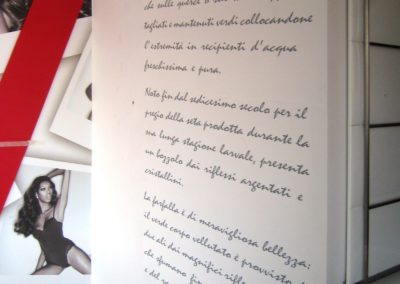 che sulle querce o su
tagliati e mantenuti verdi collocandone
l'estremità in recipienti d'acqua
freschissima e pura.
Noto fin dal sedicesimo secolo per il
pregio della seta prodotta durante la
sua lunga stagione larvale, presenta
un bozzolo dai riflessi argentati e
cristallini.
La farfalla è di meravigliosa bellezza:
il verde corpo vellutato è provvisto di
due ali dai magnifici rifle
che sfumano fin
e del